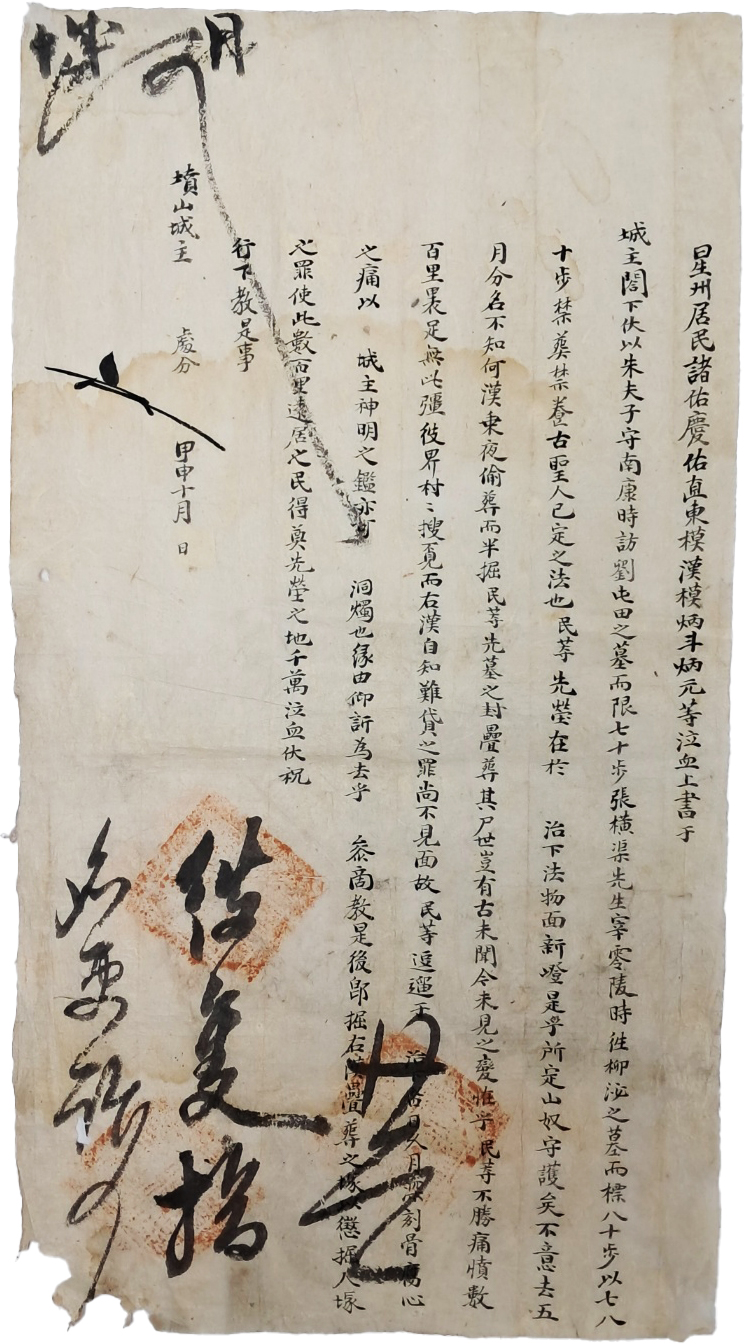 星州居民諸佑慶佑直東模漢模炳斗炳元等泣血上書于
城主閤下伏以朱夫子守南康時訪劉屯田之墓而限七十步張橫渠先生宰零陵時徃柳泌之墓而標八十步以七八
十步禁葬禁養古聖人已定之法也民等先塋在於 治下法物面新嶝是乎所定山奴守護矣不意去五
月分名不知何漢乘夜偷葬而半掘民等先墓之封疊葬其尸世豈有古未聞今未見之變惟乎民等不勝痛憤數
百里裹足無此彊彼界村〻搜覓而右漢自知難貸之罪尚不見面故民等逗遛于 刻骨
之痛以 城主神明之鑑亦可 洞燭也緣由仰訴為去乎 參商教是後卽掘右漢疊葬之塚懲掘人塚
之罪使此數百里遠居之民得奠先塋之地千萬泣血伏祝
行下教是事
墳山城主 處分
甲申十月 日
月